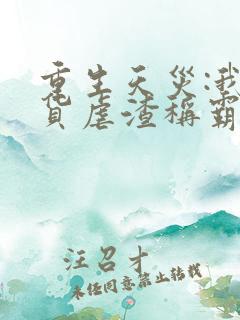 重生天災:我
貨虐渣稱霸
汪召才
未经同意禁止转载